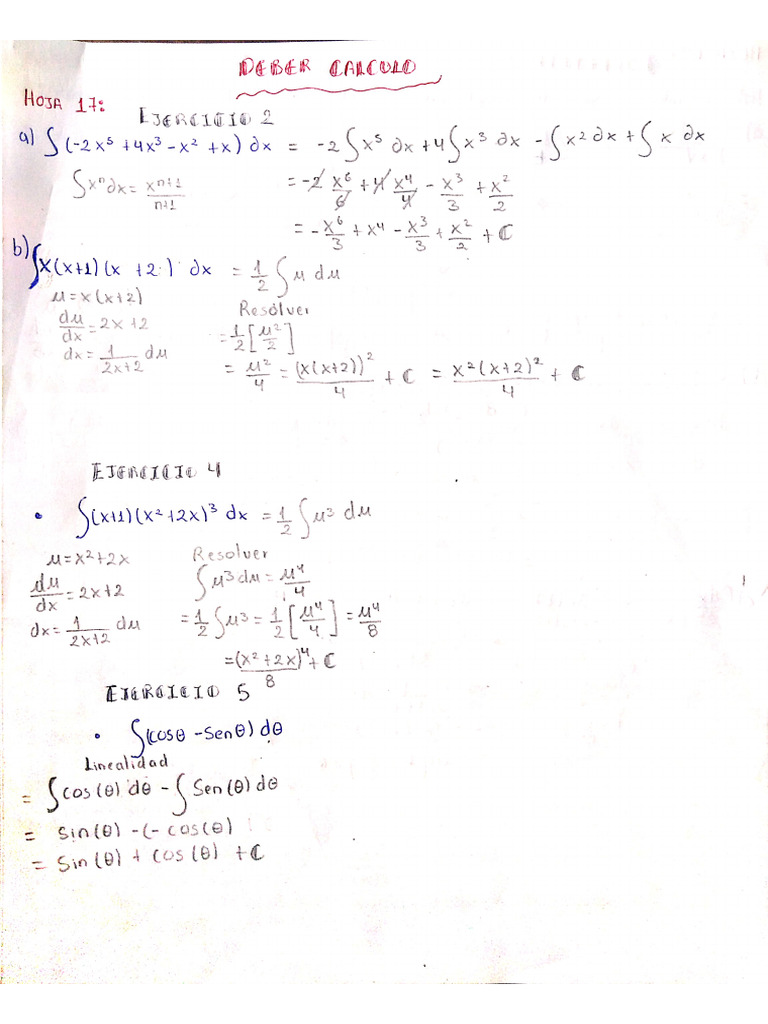 DEBER CALCULO
HOJA 17:
EJERCICIO 2
a) ∫(-2x⁵ + 4x³ - x² + x) dx = -2∫x⁵ dx + 4∫x³ dx - ∫x² dx + ∫x dx
∫xⁿ dx = xⁿ⁺¹/n+1
= -2 x⁶/6 + 4 x⁴/4 - x³/3 + x²/2
= -x⁶/3 + x⁴ - x³/3 + x²/2 + C
b) ∫x(x+1)(x+2) dx = 1/2 ∫ u du
u = x(x+2)
Resolver
du/dx = 2x+2
= 1/2 [u²/2]
dx = 1/2x+2 du
= u²/4 = (x(x+2))²/4 + C = x²(x+2)²/4 + C
EJERCICIO 4
• ∫(x+1)(x²+2x)³ dx = 1/2 ∫u³ du
u = x²+2x
Resolver
du/dx = 2x+2
∫u³ du = u⁴/4
dx = 1/2x+2 du
= 1/2 ∫u³ = 1/2 [u⁴/4] = u⁴/8
= (x²+2x)⁴/8 + C
EJERCICIO 5
• ∫(cosθ - Senθ) dθ
Linealidad
= ∫cos(θ) dθ - ∫Sen(θ) dθ
= sin(θ) - (- cos(θ)
= Sin(θ) + Cos(θ) + C